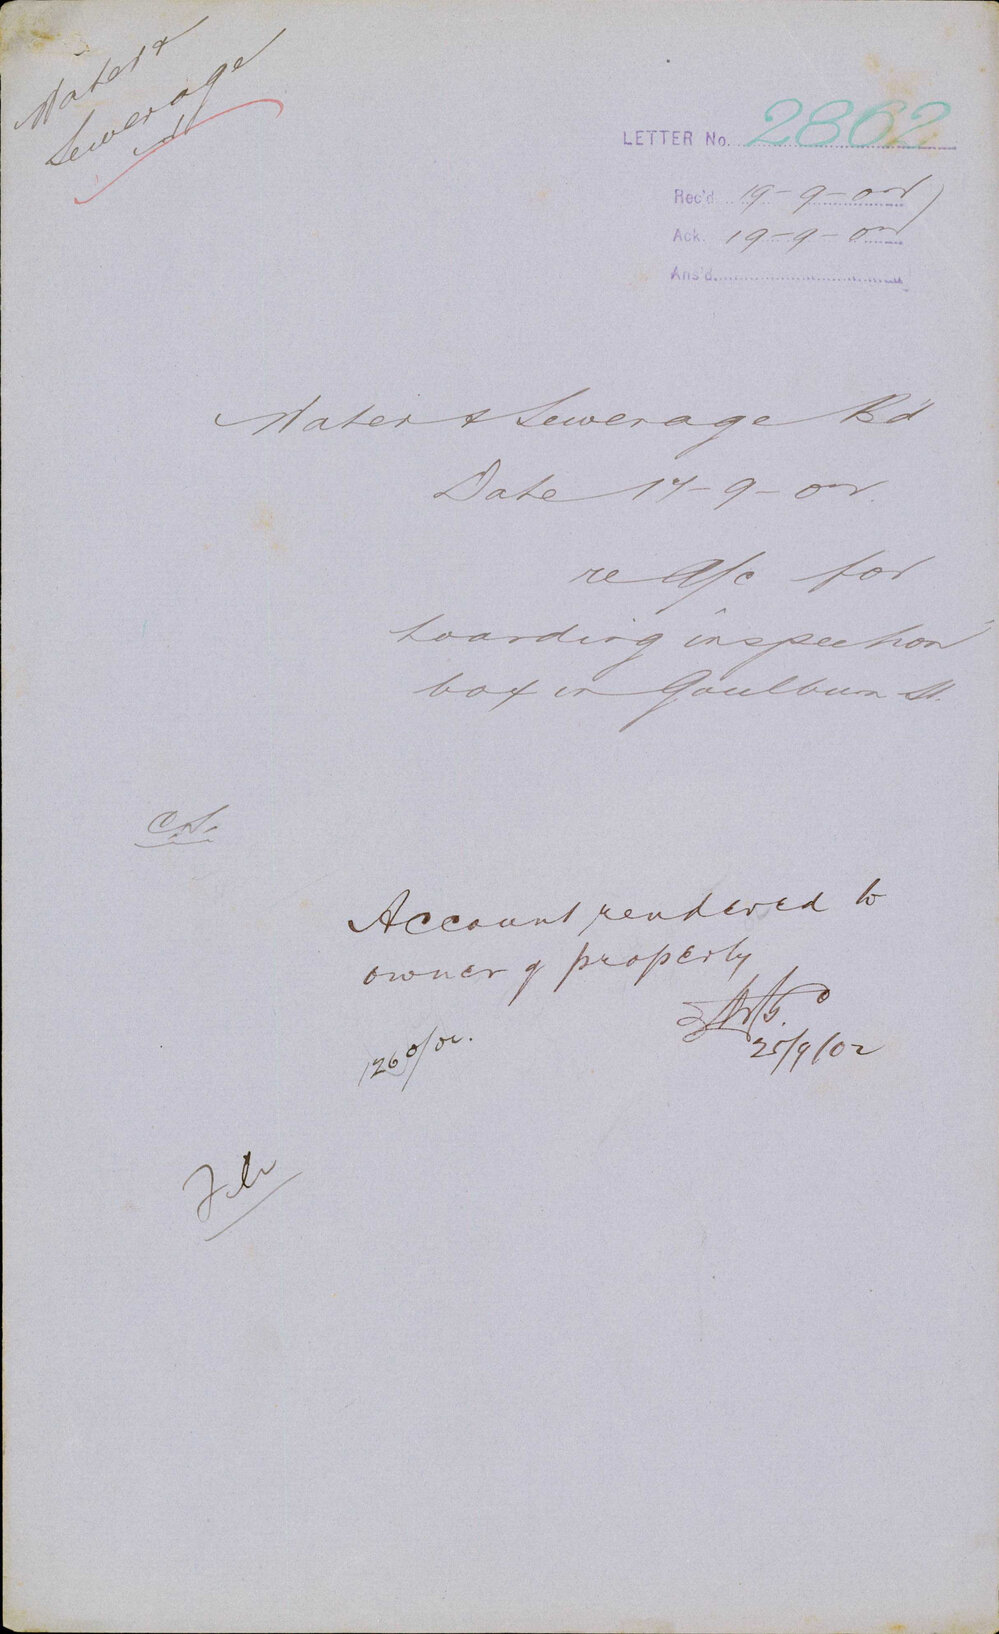 Water &
Sewerage
LETTER No. 2862
Rec'd 19-9-02
Ack. 19-9-02
Ans'd
Water & Sewerage Bd
Date 17-9-02
re A/c for
hoarding inspection
box in Goulburn St.
C.S.
Account rendered to
owner of property
25/9/02
1260/02.
File